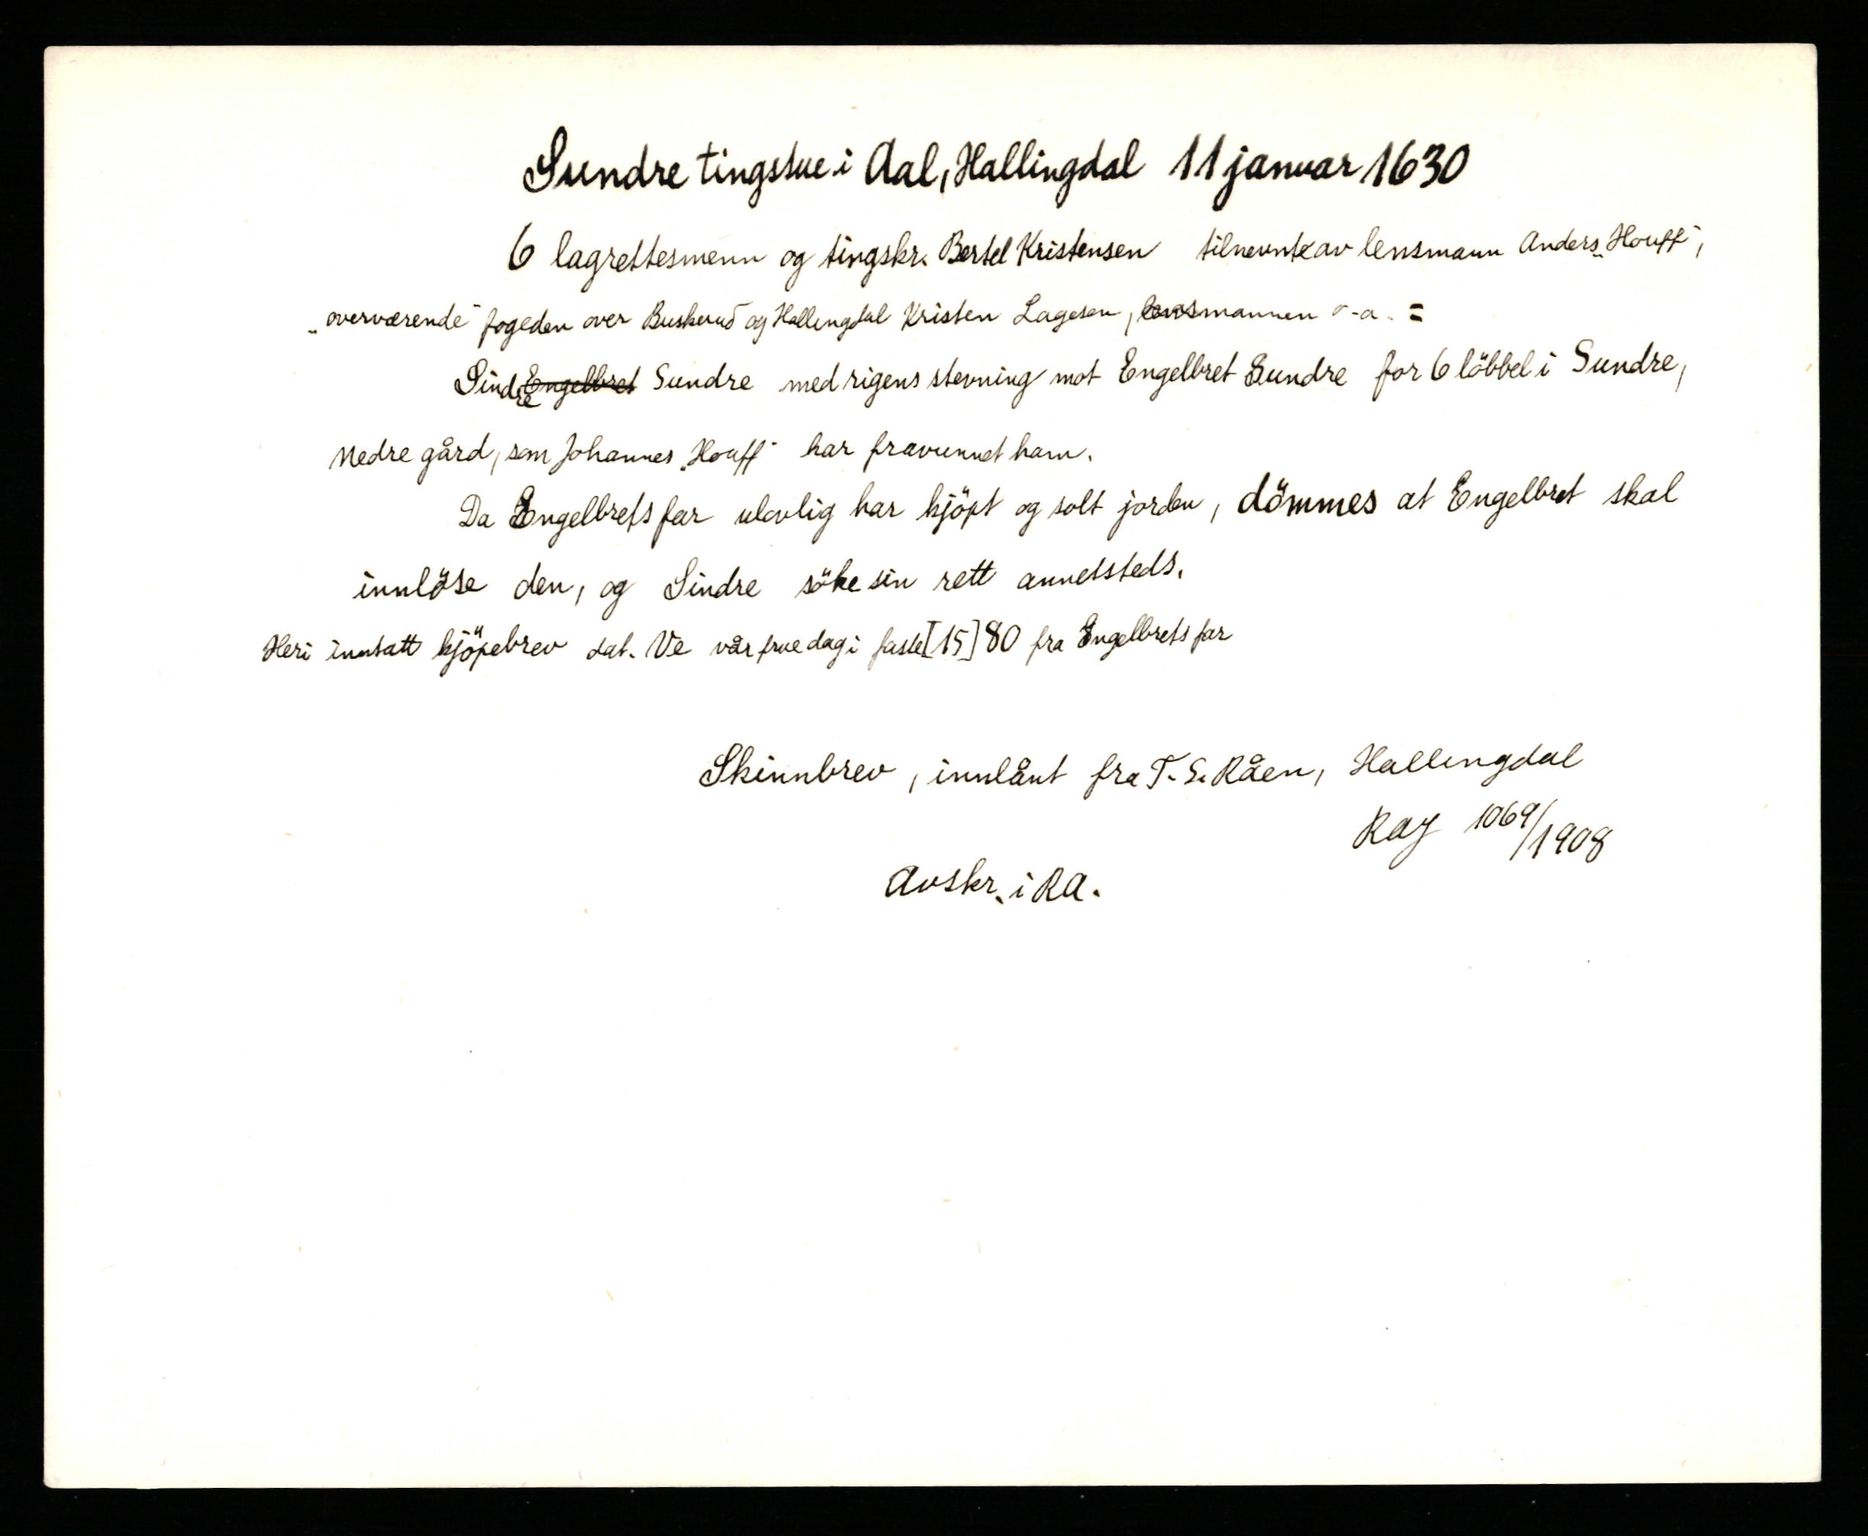 Sundre tingstue i Aal, Hallingdal 11 januar 1630
6 lagrettesmenn og tingskr. Bertel Kristensen tilnevnte av lensmann Anders „Houff",
„overværende" fogeden over Buskerud og Hallingdal Kristen Lagesen, lensmannen o-a. =
Sindre Engelbret Sundre med rigens stevning mot Engelbret Sundre for 6 löbbel i Sundre,
Nedre gård, som Johannes „Houff" har fravunnet ham.
Da Engelbrets far ulovlig har kjöpt og solt jorden, dömmes at Engelbret skal
innlöse den, og Sindre söke sin rett annetsteds.
Heri inntatt kjöpebrev dat. Ve vår frue dag i faste [15]80 fra Engelbrets far
Skinnbrev, innlånt fra T. S. Råen, Hallingdal
RAJ 1069/1908
Avskr. i RA.